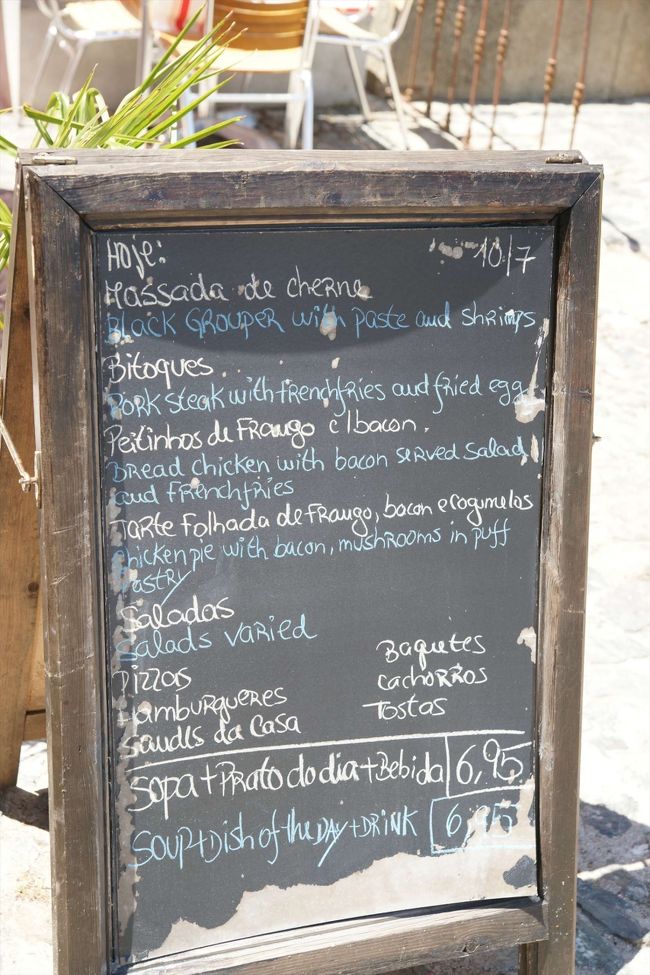 Hoje: 10/7
Massada de cherne
Black Grouper with paste and shrimps
Bitoques
Pork steak with frenchfries and fried egg
Peitinhos de Frango c/bacon.
Bread chicken with bacon served salad
and Frenchfries
Tarte Folhada de Frango, bacon e cogumelos
Chicken pie with bacon, mushrooms in puff
Pastry
Saladas
Salads varied
Pizzas
Hamburgueres
da Casa
Baquetes
Cachorros
Tostas
Sopa+Prato do dia+Bebida 6,95
Soup+Dish of the Day+Drink 6,95